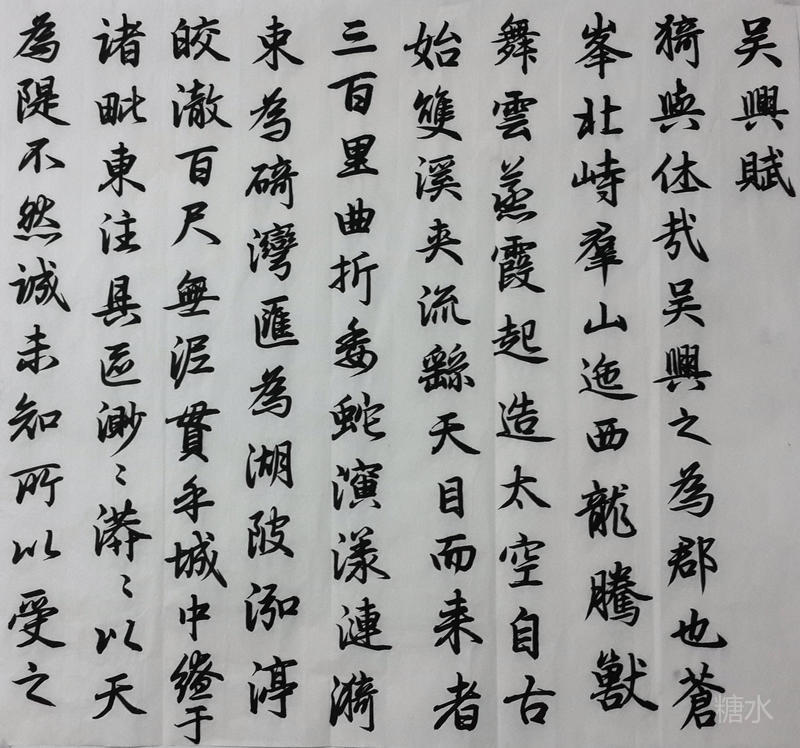 吳興賦
猗與休哉吳興之為郡也蒼
峯北峙羣山迤西龍騰獸
舞雲蒸霞起造太空自古
始雙溪夾流繇天目而来者
三百里曲折委蛇演漾漣漪
束為碕灣匯為湖陂泓渟
皎澈百尺無泥貫乎城中繚于
诸毗東注具區渺〻漭〻以天
為隄不然誠未知所以受之
糖水